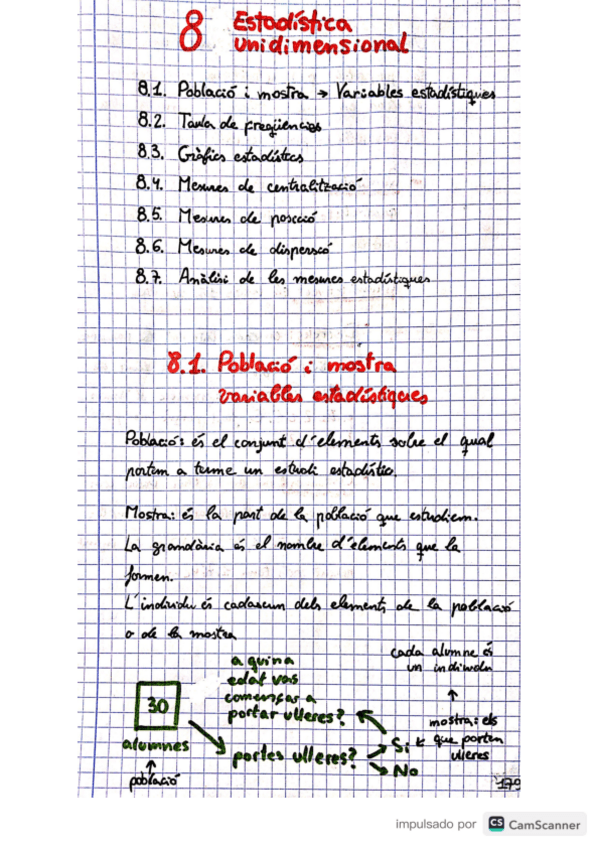 8 Estadística
unidimensional
8.1. Població i mostra → Variables estadístiques
8.2. Taula de freqüències
8.3. Gràfics estadístics
8.4. Mesures de centralització
8.5. Mesures de posició
8.6. Mesures de dispersió
8.7. Anàlisi de les mesures estadístiques
8.1. Població i mostra
variables estadístiques
Població: és el conjunt d'elements sobre el qual
portem a terme un estudi estadístic.
Mostra: és la part de la població que estudiem.
La grandària és el nombre d'elements que la
formen.
L'individu és cadascun dels elements de la població
o de la mostra
cada alumne és
un individu
a quina
edat vas
començar a
portar ulleres?
30
alumnes
↑
població
portes ulleres?
Sí
No
↑
mostra: els
que porten
ulleres
179
impulsado por CS CamScanner